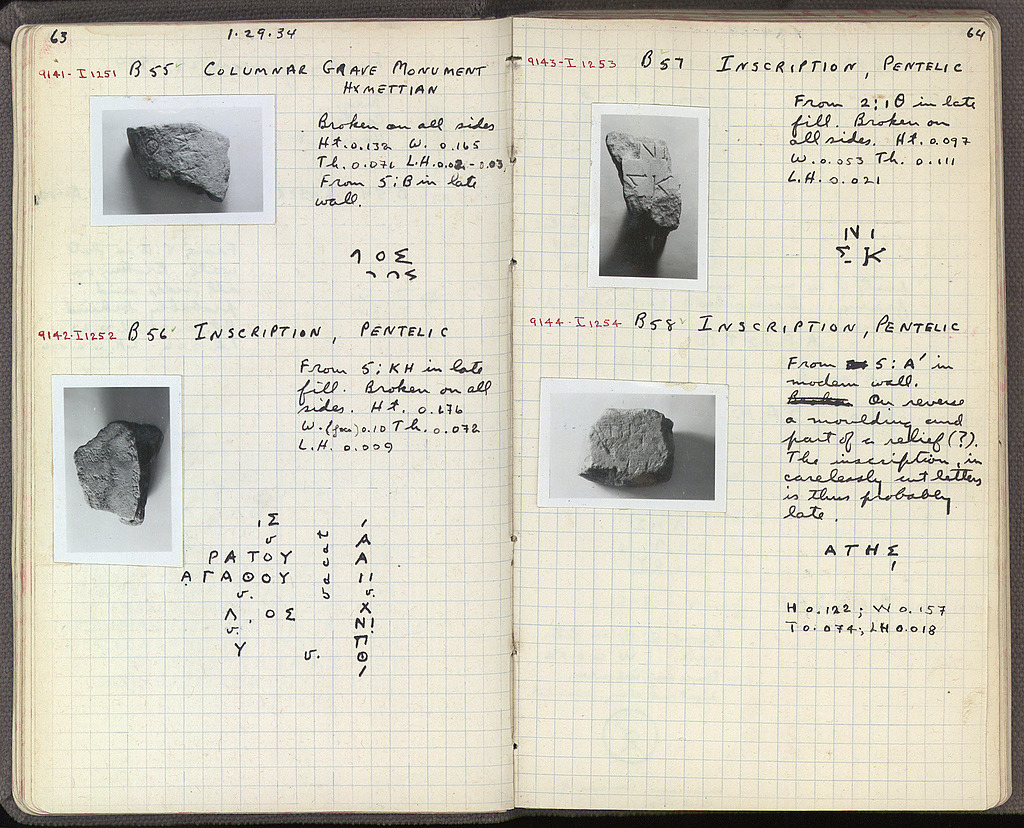 63
1.29.34
9141-I 1251 B 55 COLUMNAR GRAVE MONUMENT
HYMETTIAN
Broken on all sides
Ht. 0.132 W. 0.165
Th. 0.076 L.H. 0.02-0.03
From 5:B in late
wall.
ΟΣ
9142-I 1252 B 56 INSCRIPTION, PENTELIC
From 5:KH in late
fill. Broken on all
sides. Ht. 0.176
W. (face) 0.10 Th. 0.072
L.H. 0.009
Σ
υ
ΡΑΤΟΥ
ΑΓΑΘΟΥ
υ.
Λ . ΟΣ
υ.
Υ υ.
vacat
Α
Α
υ.
Χ
Ν
Π
Θ
64
9143-I 1253 B 57 INSCRIPTION, PENTELIC
From 2:1Θ in late
fill. Broken on
all sides. Ht. 0.097
W. 0.053 Th. 0.111
L.H. 0.021
ΙΝΙ
ΣΚ
9144-I 1254 B 58 INSCRIPTION, PENTELIC
From 5:A' in
modern wall.
On reverse
a moulding and
part of a relief (?).
The inscription, in
carelessly cut letters
is thus probably
late.
ΑΤΗΣ
H 0.122; W 0.157
T 0.074; LH 0.018